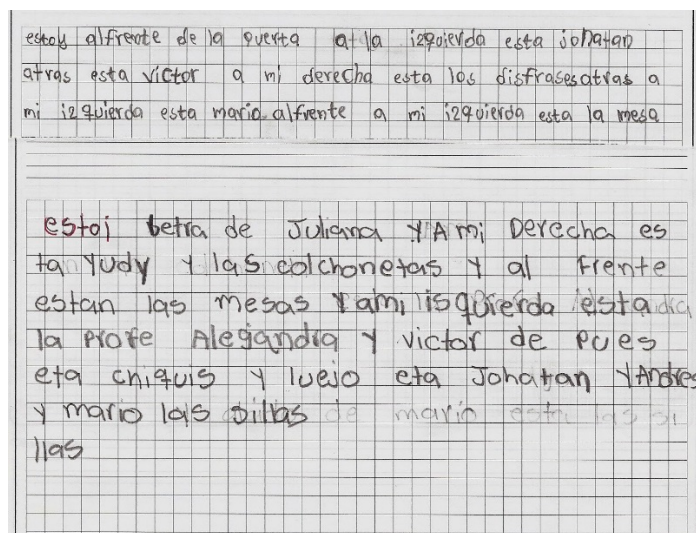 estoy alfrente de la puerta at la izquierda esta johatan
atras esta victor a mi derecha esta los disfrases atras a
mi izquierda esta mario alfrente a mi izquierda esta la mesa
estoi betra de Juliana Y A mi Derecha es
ta Yudy Y las colchonetas Y al frente
estan las mesas Y ami isquierda esta
la profe Alegandra Y victor de pues
eta chiquis Y luejo eta Johatan Y Andres
Y mario las sillas de mario esta las si
llas